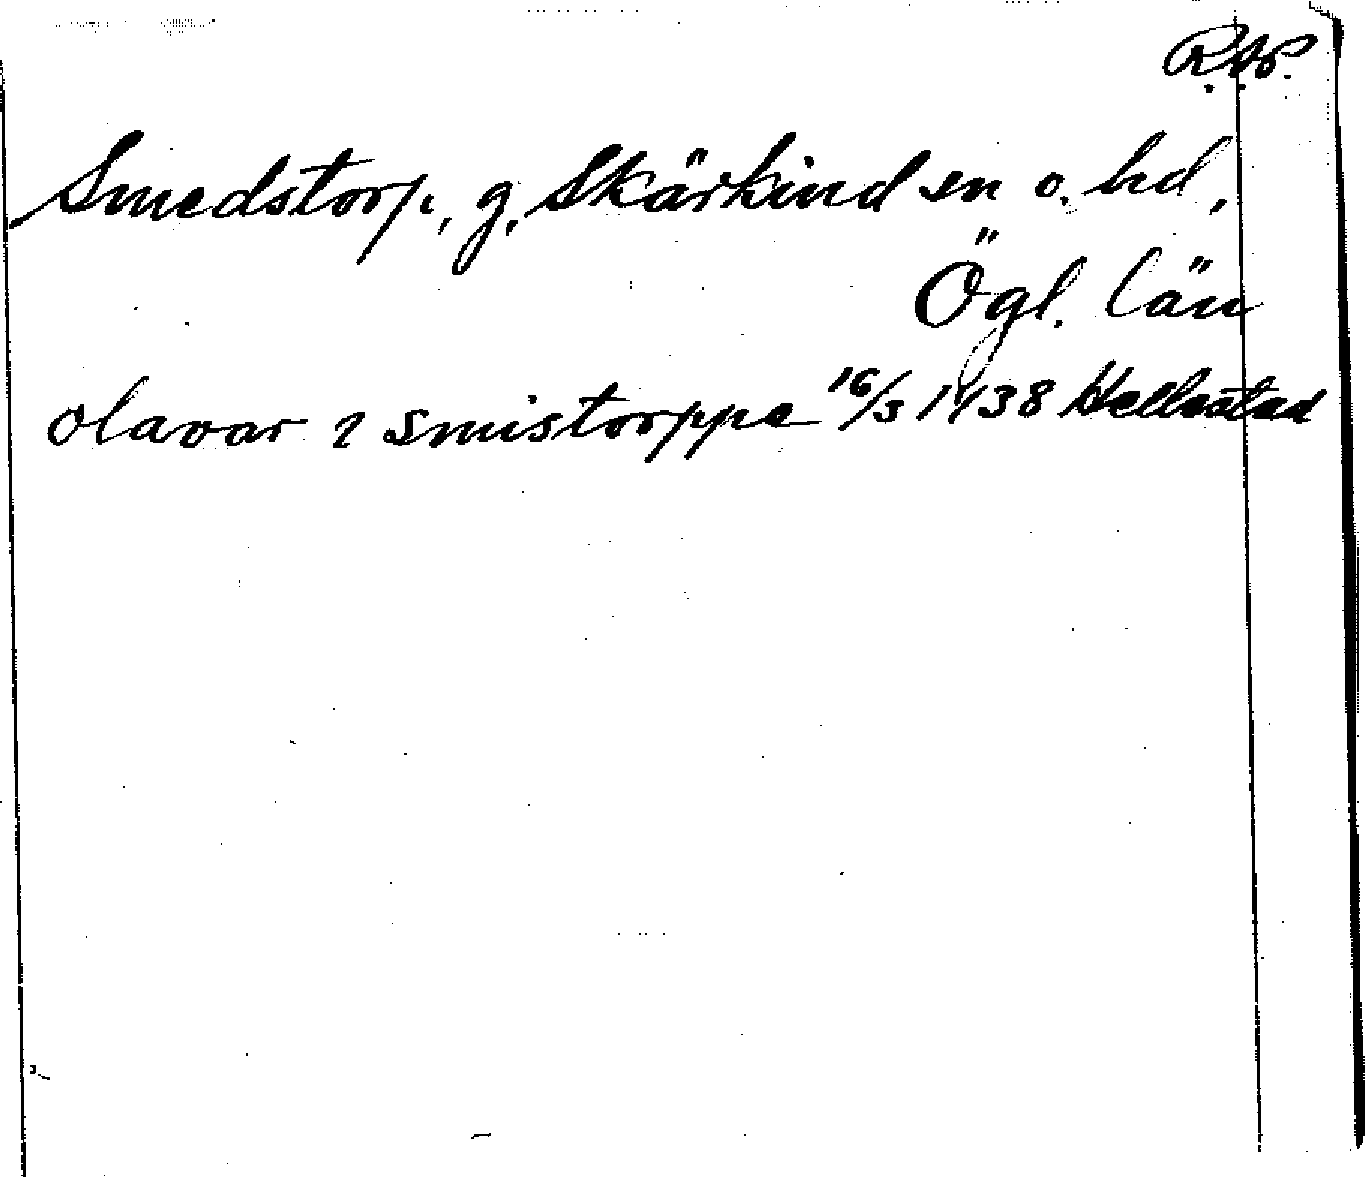 R.Ap.
Smedstorp, g, Skärkind sn o. hd,
Ögl. län
olavar i smistorppe 16/3 1438 Hellestad